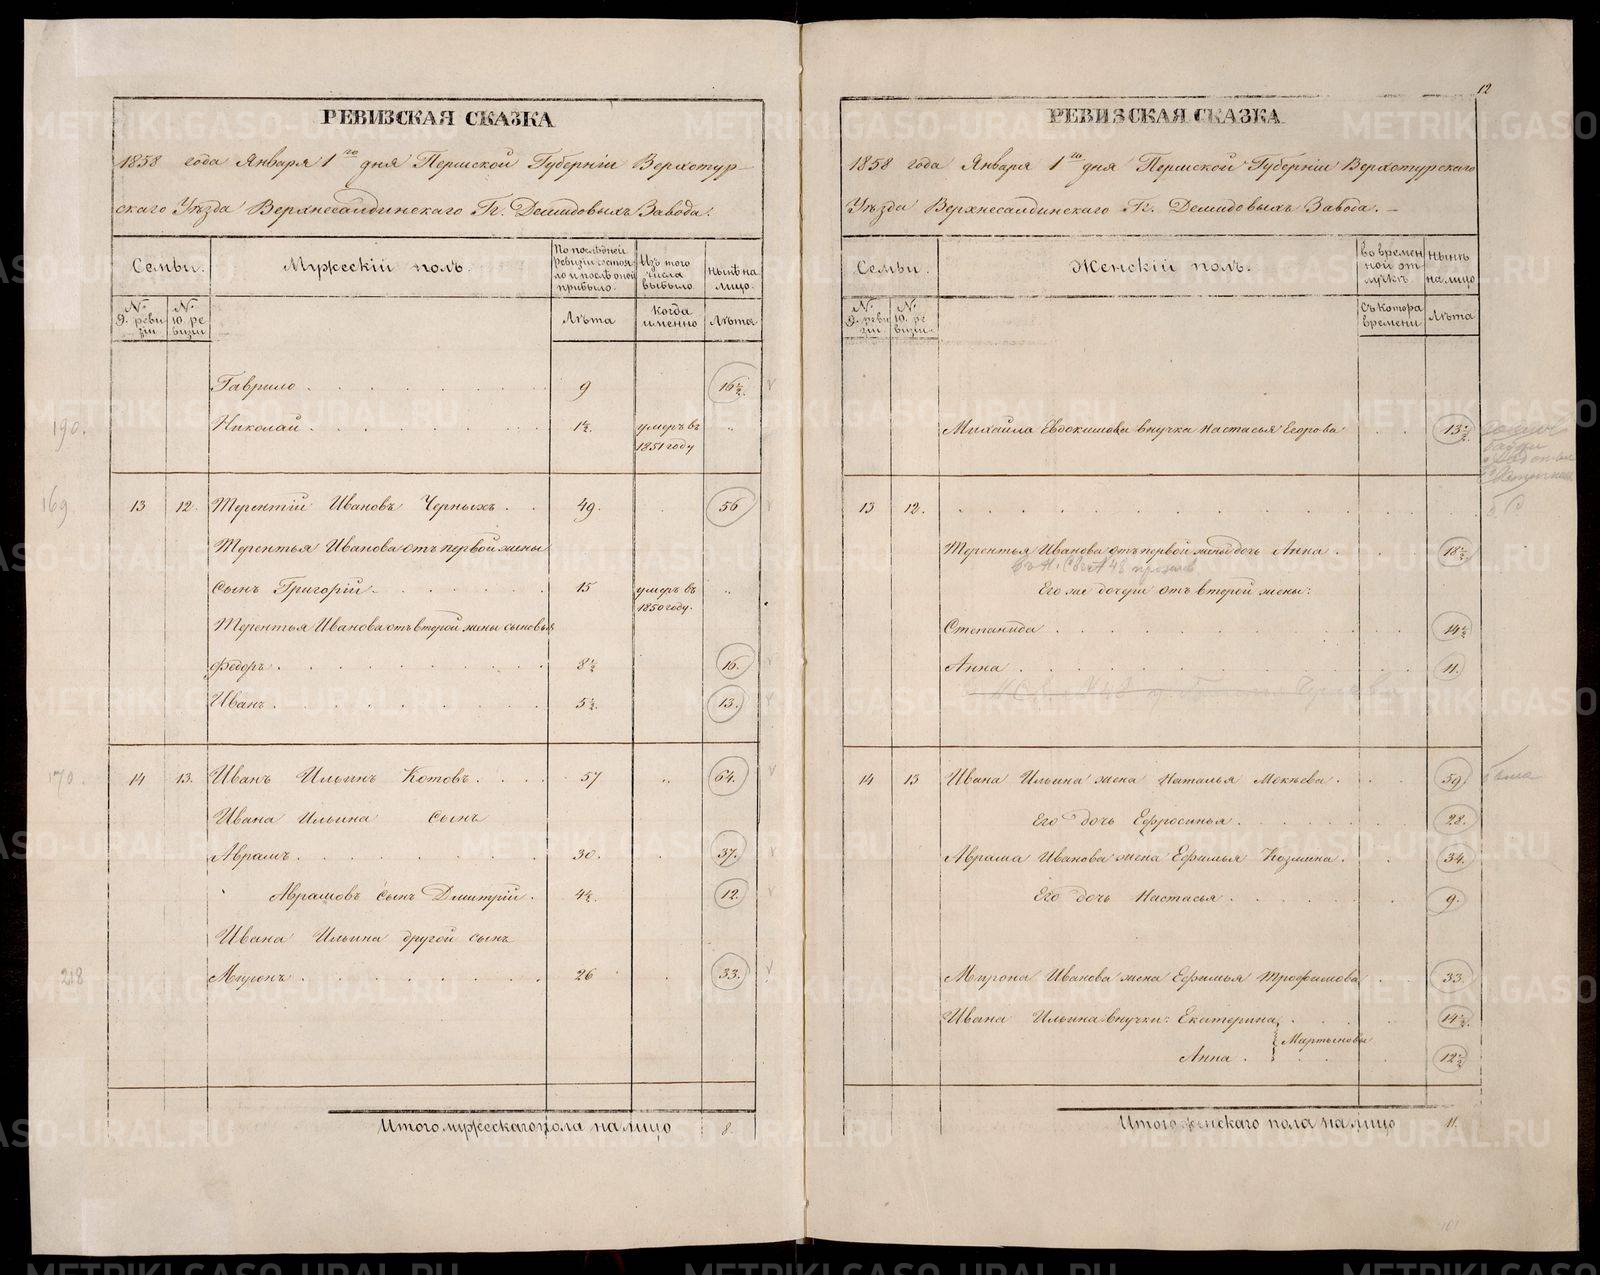 РЕВИЗСКАЯ СКАЗКА
1858 года Января 1го дня Пермской Губерніи Верхотур-
скаго Уѣзда Верхнесалдинскаго Гг. Демидовыхъ Завода.
Семьи.
Мужескій полъ.
По послѣдней ревизіи состояло и послѣ оной прибыло.
Изъ того числа выбыло
Нынѣ на лицо.
№ 9. ревизіи
№ 10. ревизіи
Лѣта
Когда именно
Лѣта
Гаврило . 9 16½.
190.
Николай . 1½. умеръ въ 1851 году „
169. 13 12. Терентій Ивановъ Черныхъ . . 49. 56
Терентья Иванова отъ первой жены
сынъ Григорій . 15 умеръ въ 1850 году. „
Терентья Иванова отъ второй жены сыновья
Федоръ . 8½ 16.
Иванъ . 5½. 13.
170. 14 13. Иванъ Ильинъ Котовъ . 57 „ 64.
Ивана Ильина сынъ
Абрамъ . 30. 37.
Абрамовъ сынъ Дмитрій . 4½. 12.
Ивана Ильина другой сынъ
218 Миронъ . 26 33.
Итого мужескаго пола на лицо 8.
12
РЕВИЗСКАЯ СКАЗКА
1858 года Января 1го дня Пермской Губерніи Верхотурскаго
Уѣзда Верхнесалдинскаго Гг. Демидовыхъ Завода.
Семьи.
Женскій полъ.
Во временной отлучкѣ
Нынѣ на лицо
№ 9. ревизіи
№ 10. ревизіи.
Съ котора времени
Лѣта
Михайла Евдокимова внучка Настасья Егорова 13½
13 12.
Терентья Иванова отъ первой жены дочь Анна . 18½
Его же дочери отъ второй жены:
Степанида . 14½
Анна . 11.
14 13 Ивана Ильина жена Наталья Мокѣева . 59.
Его дочь Ефросинья . 28.
Абрама Иванова жена Ефимья Козмина . 34.
Его дочь Настасья . 9.
Мирона Иванова жена Ефимья Трофимова 33.
Ивана Ильина внучки: Екатерина 14½.
Мартыновы
Анна . 12½
Итого женскаго пола на лицо 11.
METRIKI.GASO-URAL.RU